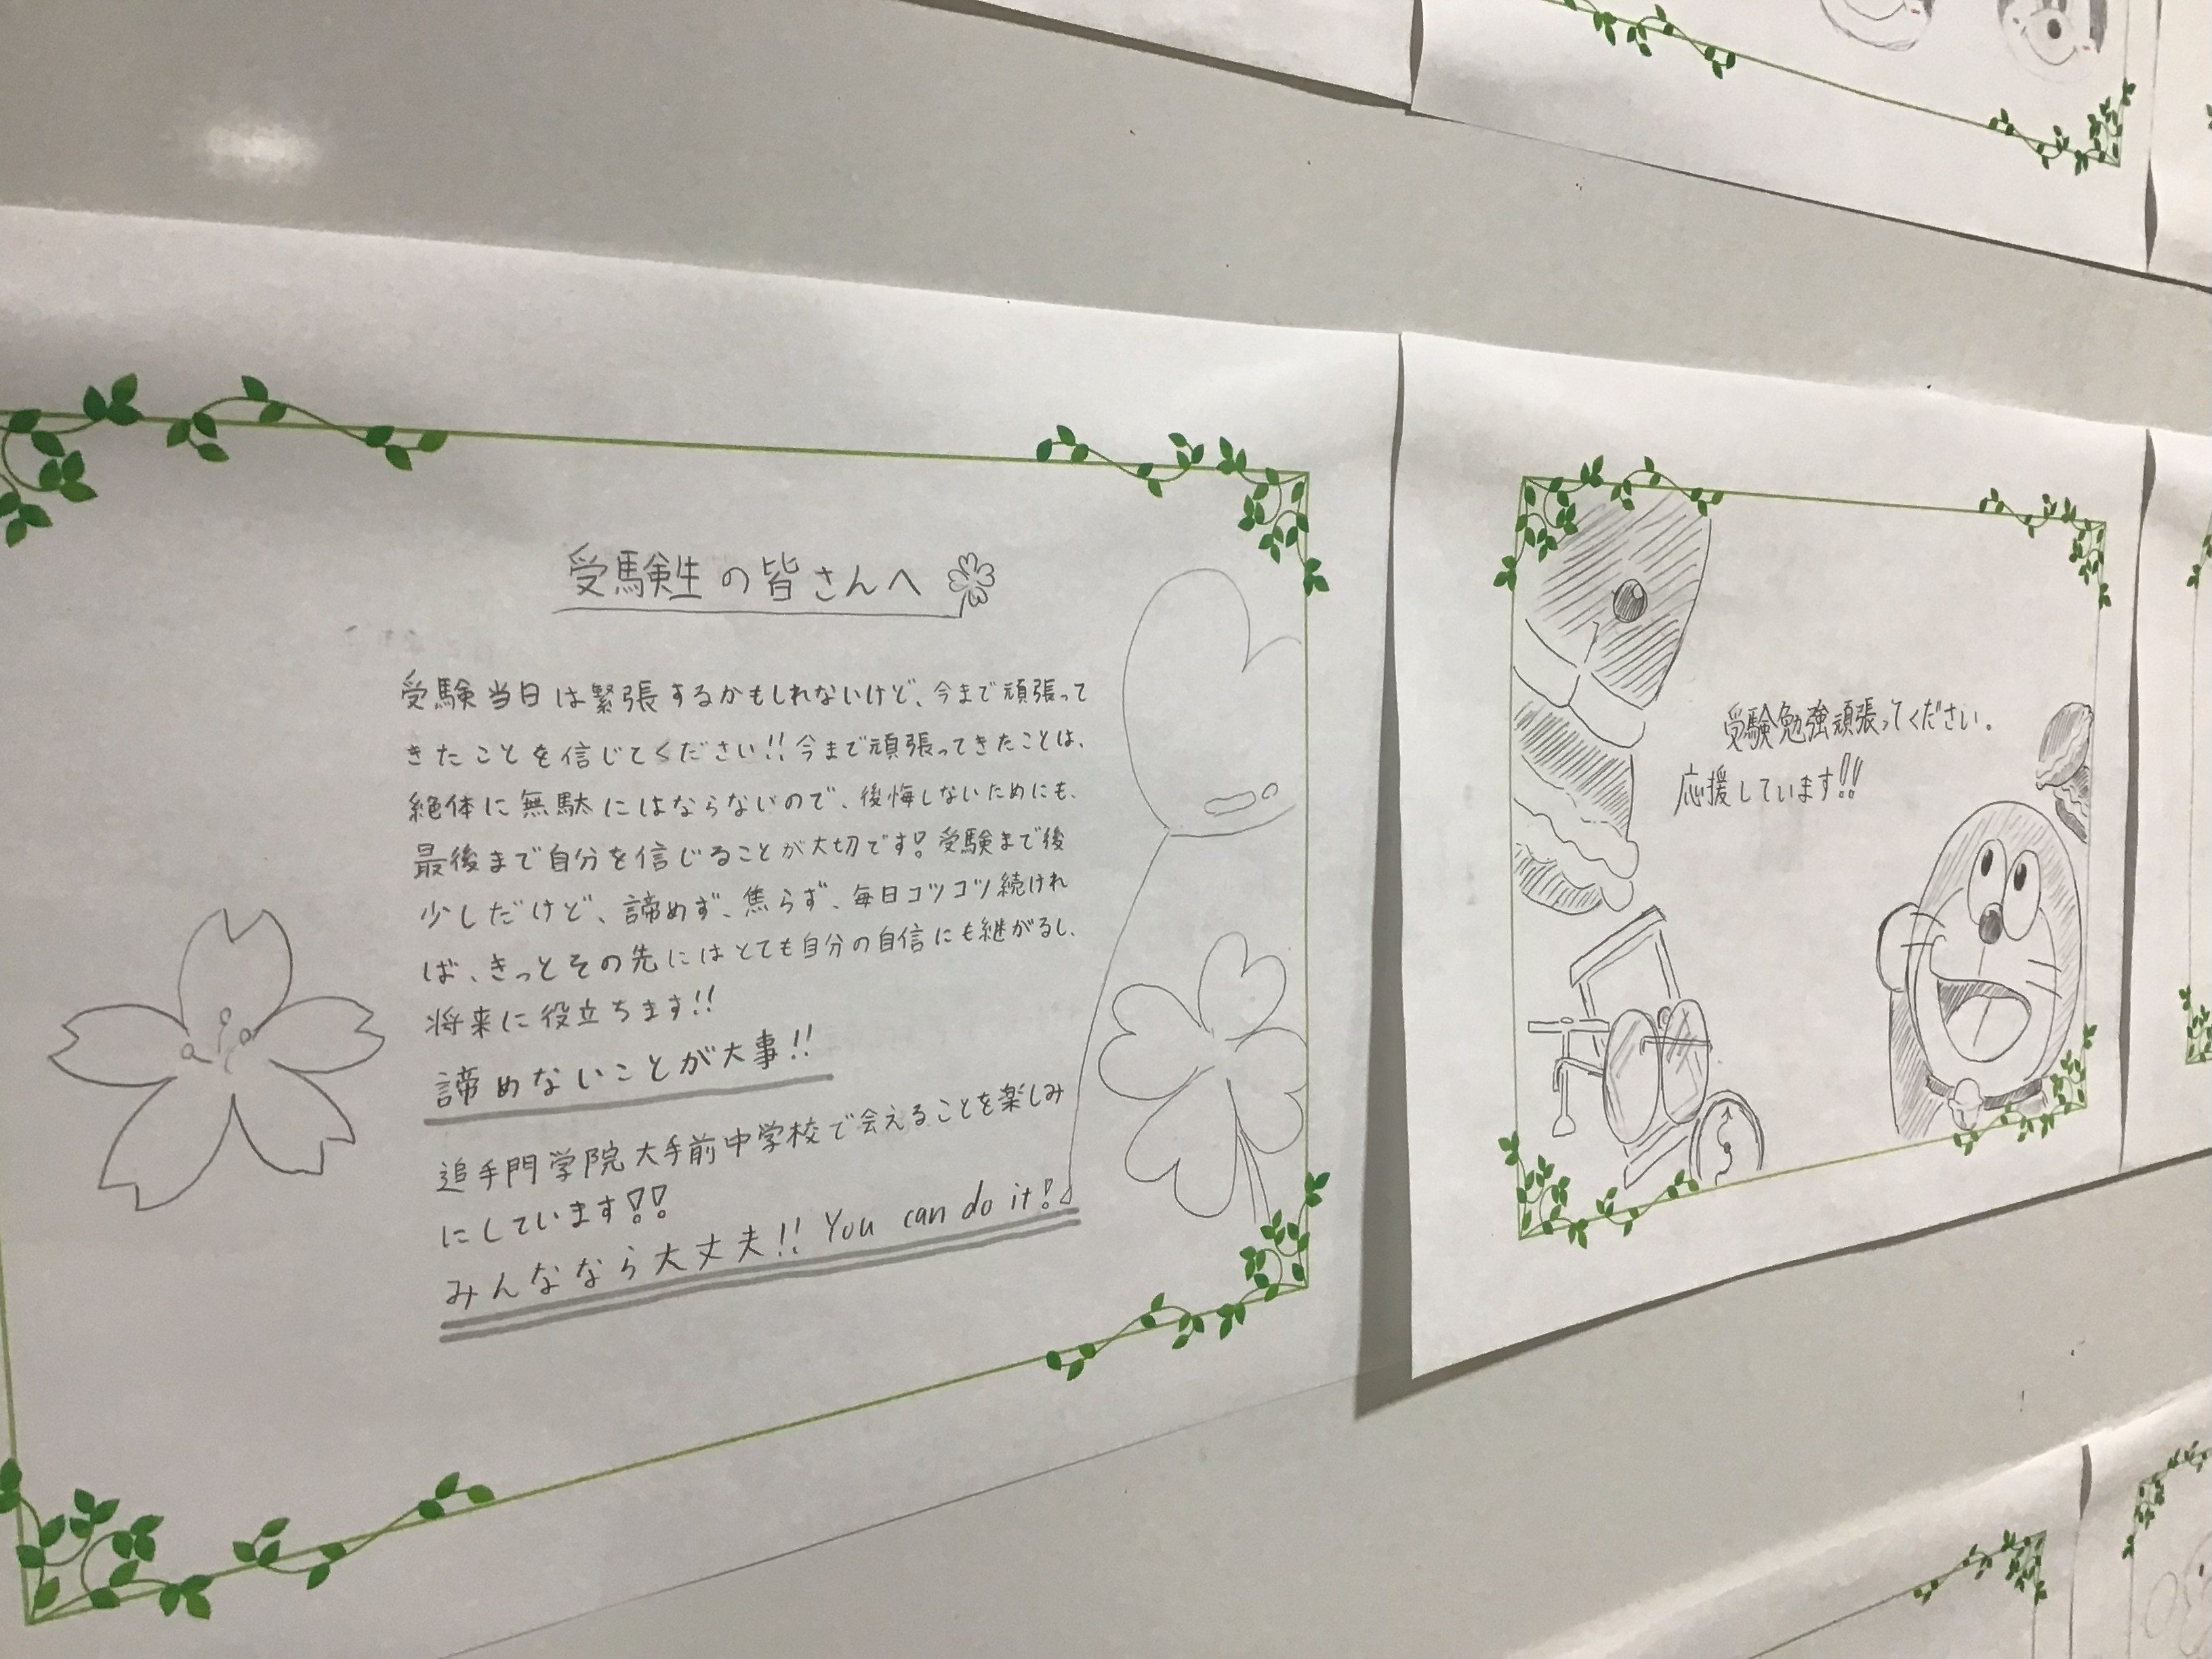 受験生の皆さんへ
受験当日は緊張するかもしれないけど、今まで頑張って
きたことを信じてください!!今まで頑張ってきたことは、
絶体に無駄にはならないので、後悔しないためにも、
最後まで自分を信じることが大切です!受験まで後
少しだけど、諦めず、焦らず、毎日コツコツ続けれ
ば、きっとその先にはとても自分の自信にも継がるし、
将来に役立ちます!!
諦めないことが大事!!
追手門学院大手前中学校で会えることを楽しみ
にしています!!
みんななら大丈夫!! You can do it!
受験勉強頑張ってください。
応援しています!!